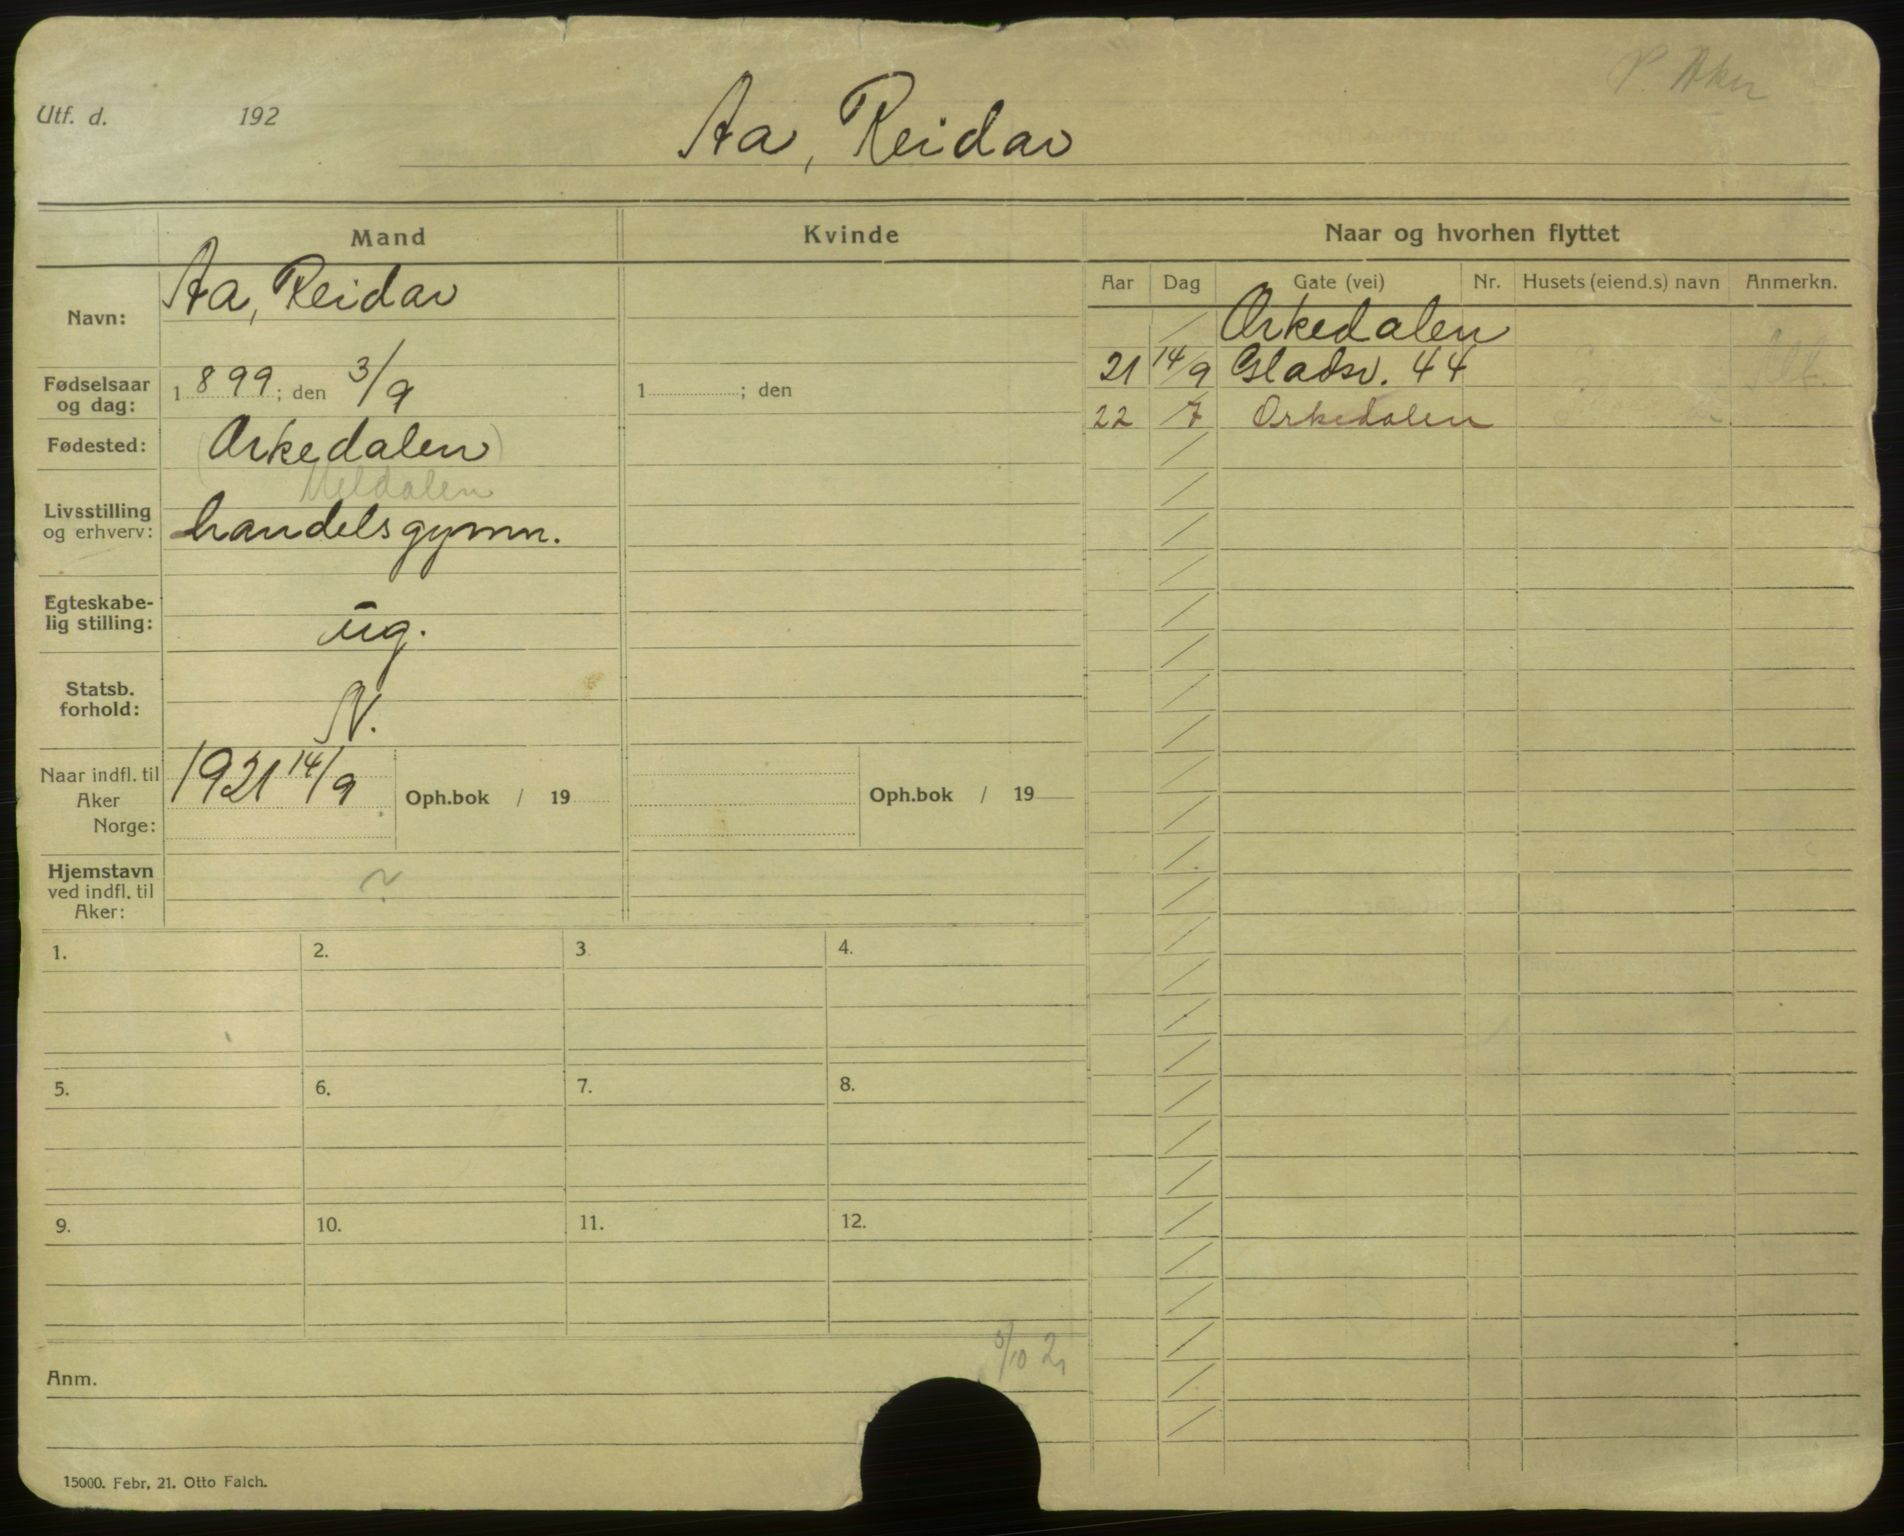 Utf. d. 192
Aa, Reidar
Mand Kvinde Naar og hvorhen flyttet
Aar Dag Gate (vei) Nr. Husets (eiend.s) navn Anmerkn.
Navn: Aa, Reidar
Fødselsaar og dag: 1 899 ; den 3/9
1 ; den
Fødested: (Orkedalen)
Meldalen
Livsstilling og erhverv: handelsgymn.
Egteskabe-
lig stilling: ug.
Statsb.
forhold: N.
Naar indfl. til
Aker
Norge: 1921 14/9 Oph.bok / 19
Oph.bok / 19
Hjemstavn
ved indfl. til
Aker: ?
/ Orkedalen
21 14/9 Gladsv. 44
22 /7 Orkedalen
1. 2. 3. 4.
5. 6. 7. 8.
9. 10. 11. 12.
Anm.
15000. Febr. 21. Otto Falch.